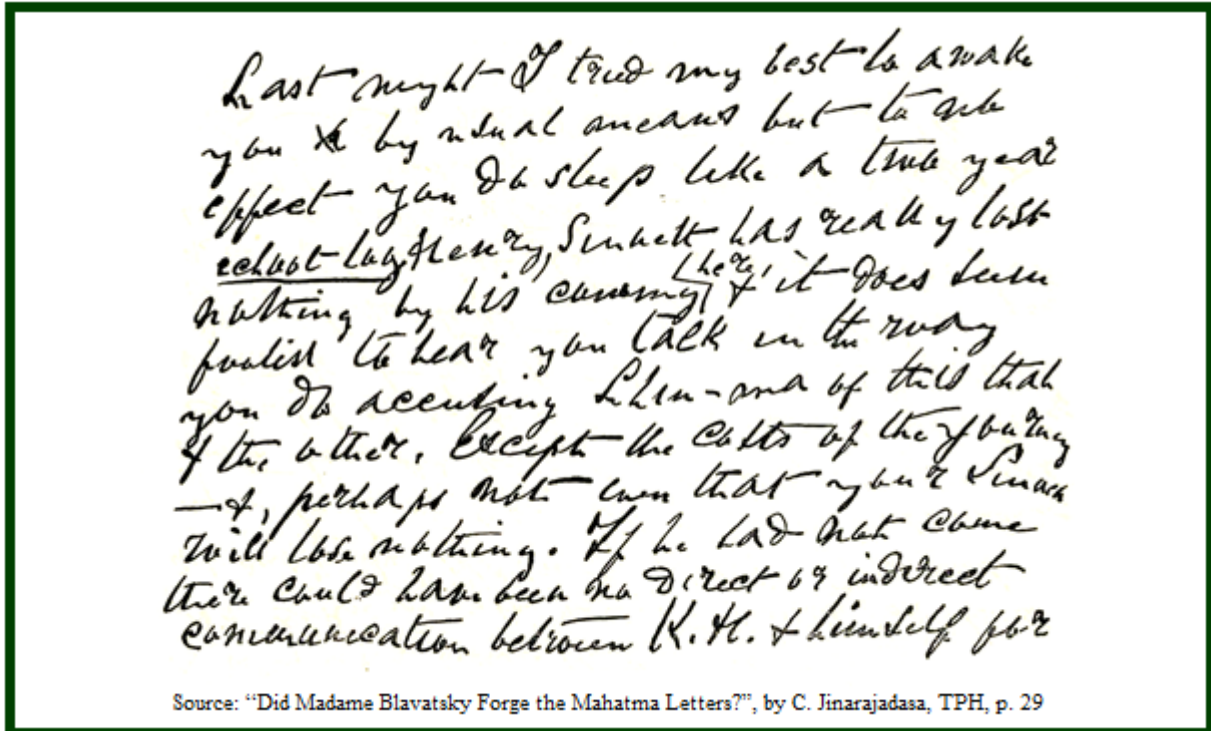 Last night I tried my best to awake
you by usual means but to no
effect you do sleep like a two year
school boy Henry, Sinnett has really lost
nothing by his coming here, & it does seem
foolish to hear you talk in the way
you do accusing of this that
& the other. Except the costs of the journey
—&, perhaps not even that your Sinnett
will lose nothing. If he had not come
there could have been no direct or indirect
communication between K.H. & himself for
Source: “Did Madame Blavatsky Forge the Mahatma Letters?”, by C. Jinarajadasa, TPH, p. 29